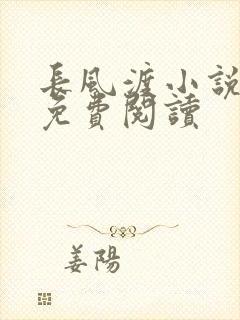 長風渡小說
免費閱讀
姜陽